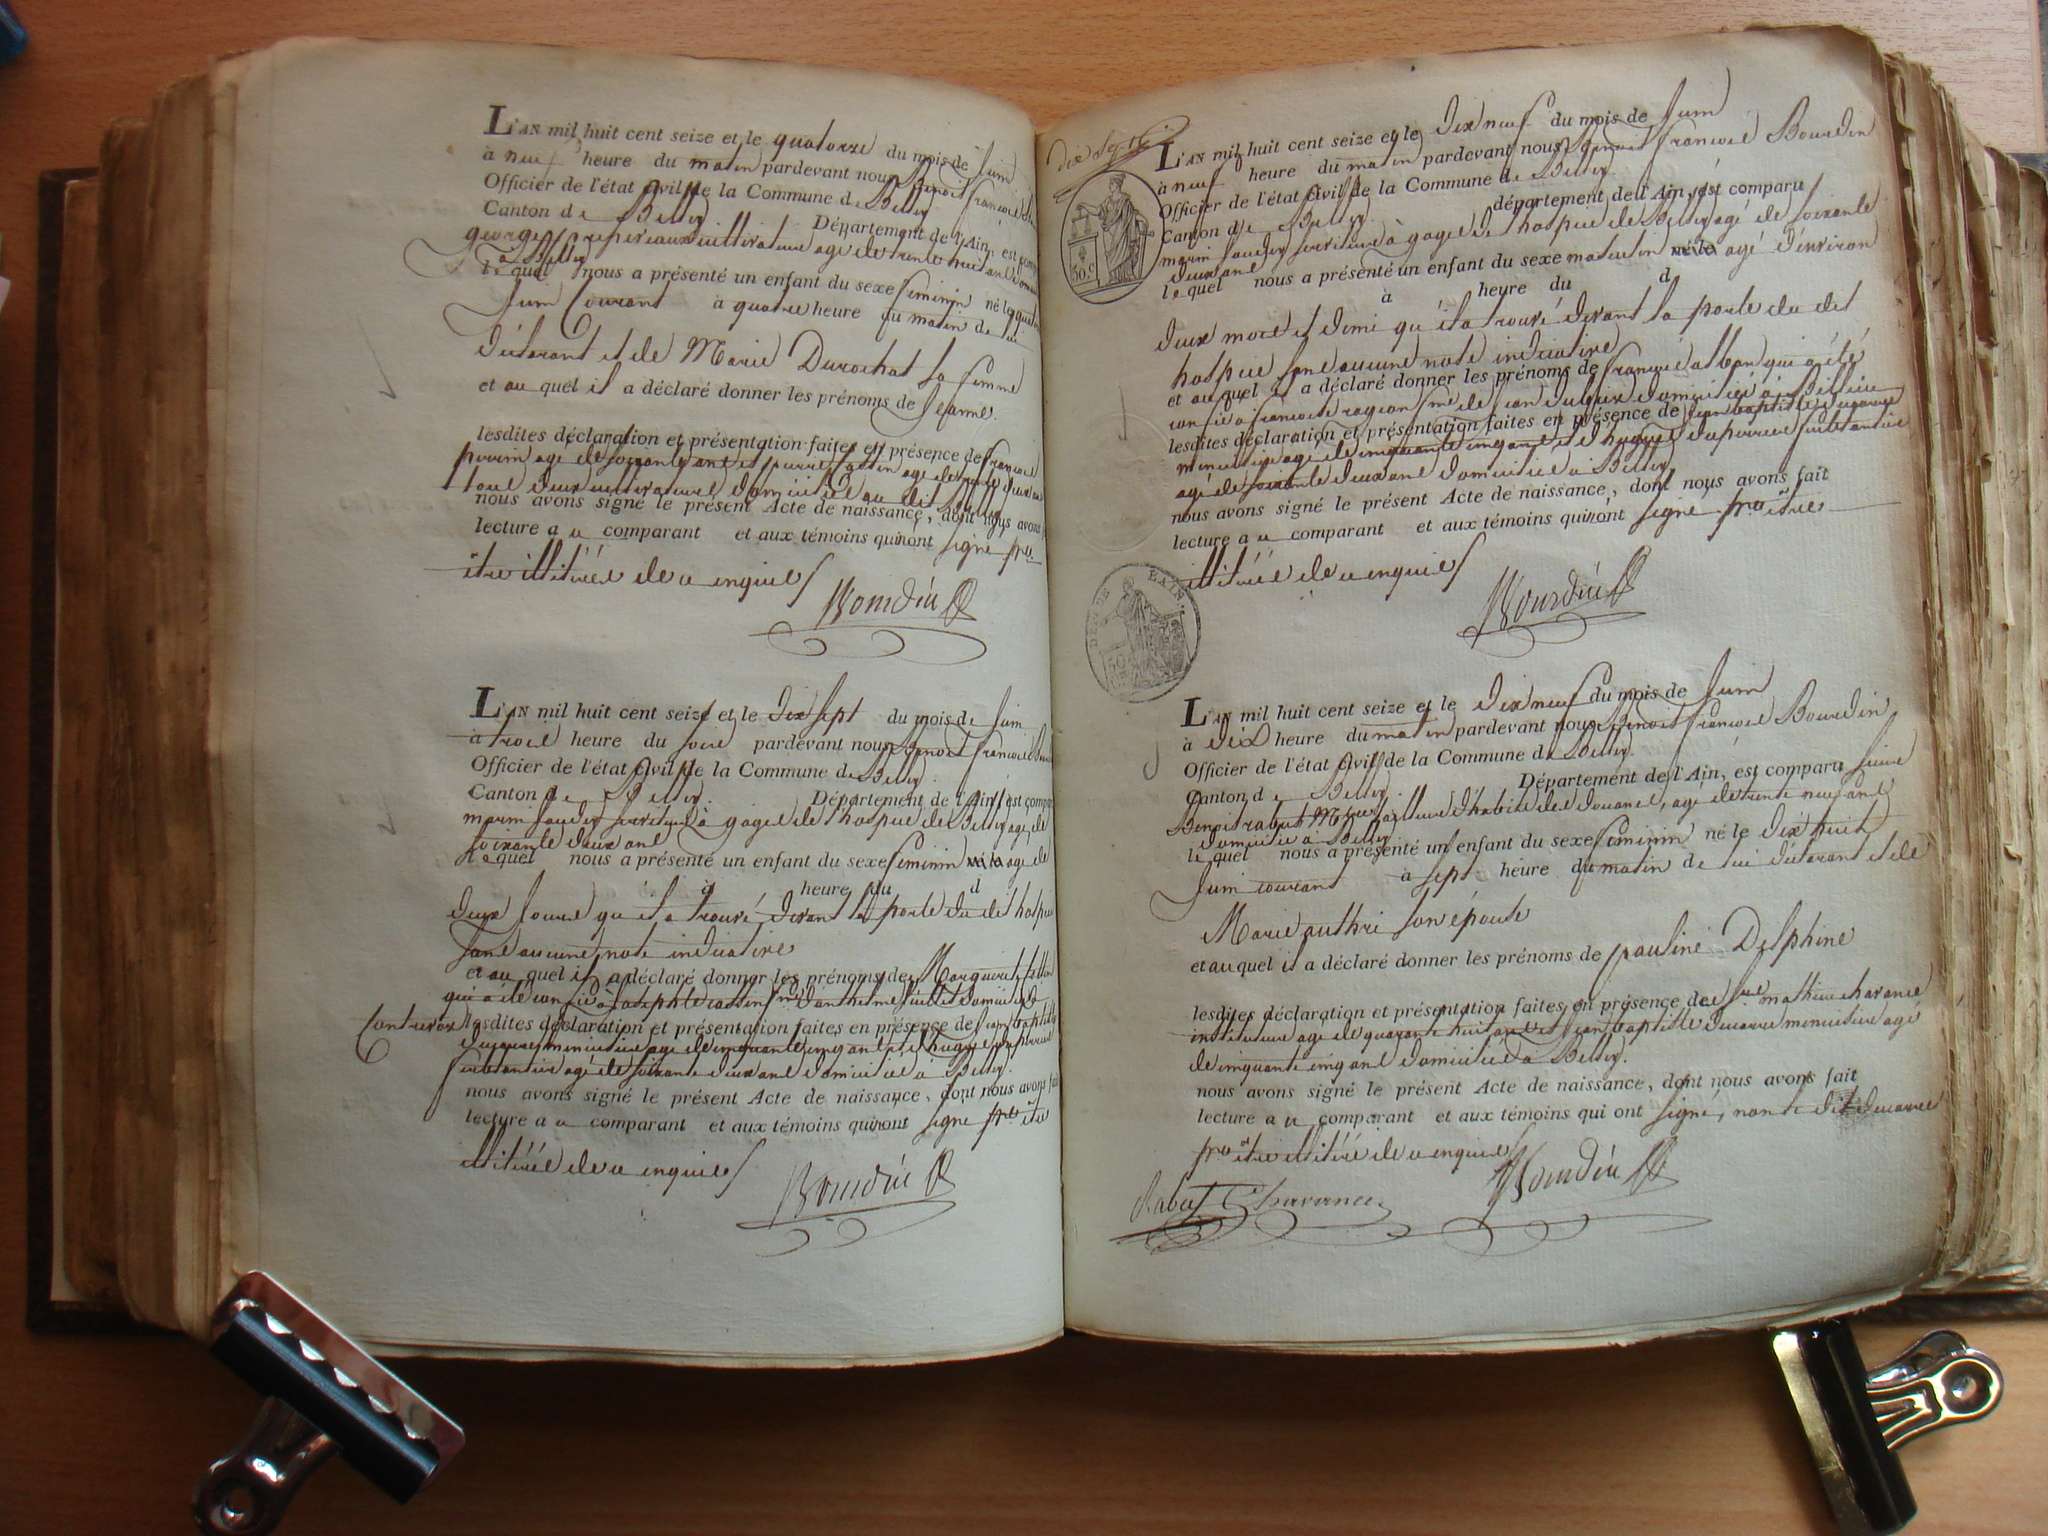 L'AN mil huit cent seize et le quatorze du mois de Juin
à neuf heure du matin pardevant nous Benoit François
Officier de l'état Civil de la Commune de Belley
Canton de Belley. Département de l'Ain, est
george cultivateur agé de trente huit ans
à Belley
lequel nous a présenté un enfant du sexe feminin né le
Juin Courant à quatre heure du matin de lui
déclarant et de Marie Durochat sa femme
et au quel il a déclaré donner les prénoms de Jeanne.
lesdites déclaration et présentation faites en présence de françois
perrin agé de soixante ans et pierre agé de
tous deux cultivateurs domiciliés au dit Belley
nous avons signé le présent Acte de naissance, dont nous avons
lecture au comparant et aux témoins qui n'ont signé pour
être illitérés de ce enquis
Bourdin
L'AN mil huit cent seize et le dix sept du mois de Juin
à trois heure du soir pardevant nous Benoit François
Officier de l'état Civil de la Commune de Belley
Canton de Belley. Département de l'Ain, est
marin serviteur à gages de l'hospice de Belley agé de
soixante deux ans
lequel nous a présenté un enfant du sexe feminin né le agé de
à heure du d
deux jours qu'il a trouvé devant la porte du dit hospice
sans aucune note indicative
et au quel il a déclaré donner les prénoms de Marguerite
qui a été confiée à Josephte domicilié à
Contrevoz lesdites déclaration et présentation faites en présence de Jean baptiste
ducarre minuisier agé de cinquante cinq ans et de hugues
agé de soixante deux ans domiciliés à Belley.
nous avons signé le présent Acte de naissance, dont nous avons fait
lecture au comparant et aux témoins qui n'ont signé pour être
illitérés de ce enquis
Bourdin
dix sept
50 c
L'AN mil huit cent seize et le dix neuf du mois de Juin
à neuf heure du matin pardevant nous Benoit François Bourdin
Officier de l'état Civil de la Commune de Belley
Canton de Belley. département de l'Ain, est comparu
marin serviteur à gages de l'hospice de Belley agé de soixante
deux ans
lequel nous a présenté un enfant du sexe masculin né le agé d'environ
à heure du d
deux mois et demi qu'il a trouvé devant la porte du dit
hospice sans aucune note indicative
et au quel il a déclaré donner les prénoms de françois alban qui a été
confié à françoise fme de domiciliée à
lesdites déclaration et présentation faites en présence de Jean baptiste ducarre
minuisier agé de cinquante cinq ans et de hugues
agé de soixante deux ans domiciliés à Belley
nous avons signé le présent Acte de naissance, dont nous avons fait
lecture au comparant et aux témoins qui n'ont signé pour être
illitérés de ce enquis
Bourdin
DEP.T DE L'AIN.
50
L'AN mil huit cent seize et le dix neuf du mois de Juin
à dix heure du matin pardevant nous Benoit François Bourdin
Officier de l'état Civil de la Commune de Belley.
Canton de Belley. Département de l'Ain, est comparu
Benoit rabut des douanes, agé de trente neuf ans
domicilié à Belley
lequel nous a présenté un enfant du sexe feminin né le dix huit
Juin courant à sept heure du matin de lui déclarant et de
Marie authri son épouse
et au quel il a déclaré donner les prénoms de pauline Delphine
lesdites déclaration et présentation faites en présence de mathieu charance
instituteur agé de quarante huit ans et Jean baptiste ducarre minuisier agé
de cinquante cinq ans domiciliés à Belley.
nous avons signé le présent Acte de naissance, dont nous avons fait
lecture au comparant et aux témoins qui ont signé, non le dit ducarre
pour être illitéré de ce enquis
Bourdin
Rabut Charance